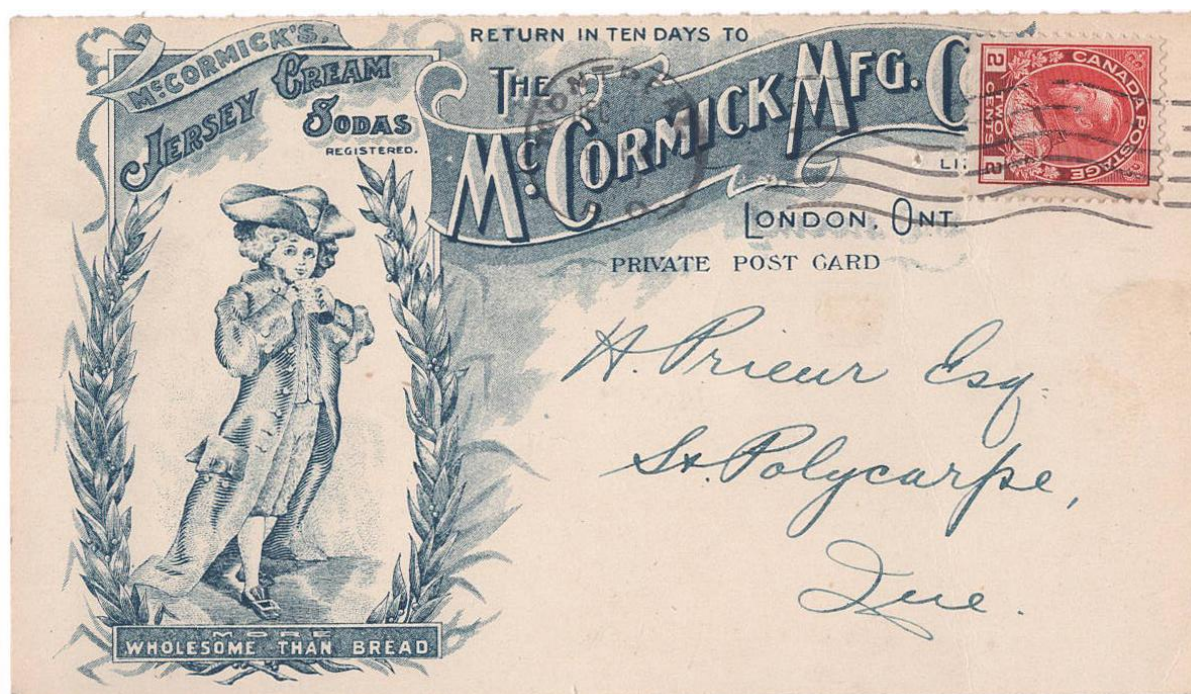 McCORMICK'S
JERSEY CREAM
SODAS
REGISTERED.
MORE
WHOLESOME THAN BREAD
RETURN IN TEN DAYS TO
THE
McCORMICK MFG.
LONDON, ONT.
PRIVATE POST CARD
CANADA POSTAGE
2 TWO 2
CENTS
H. Prieur Esq.
St. Polycarpe,
Que.